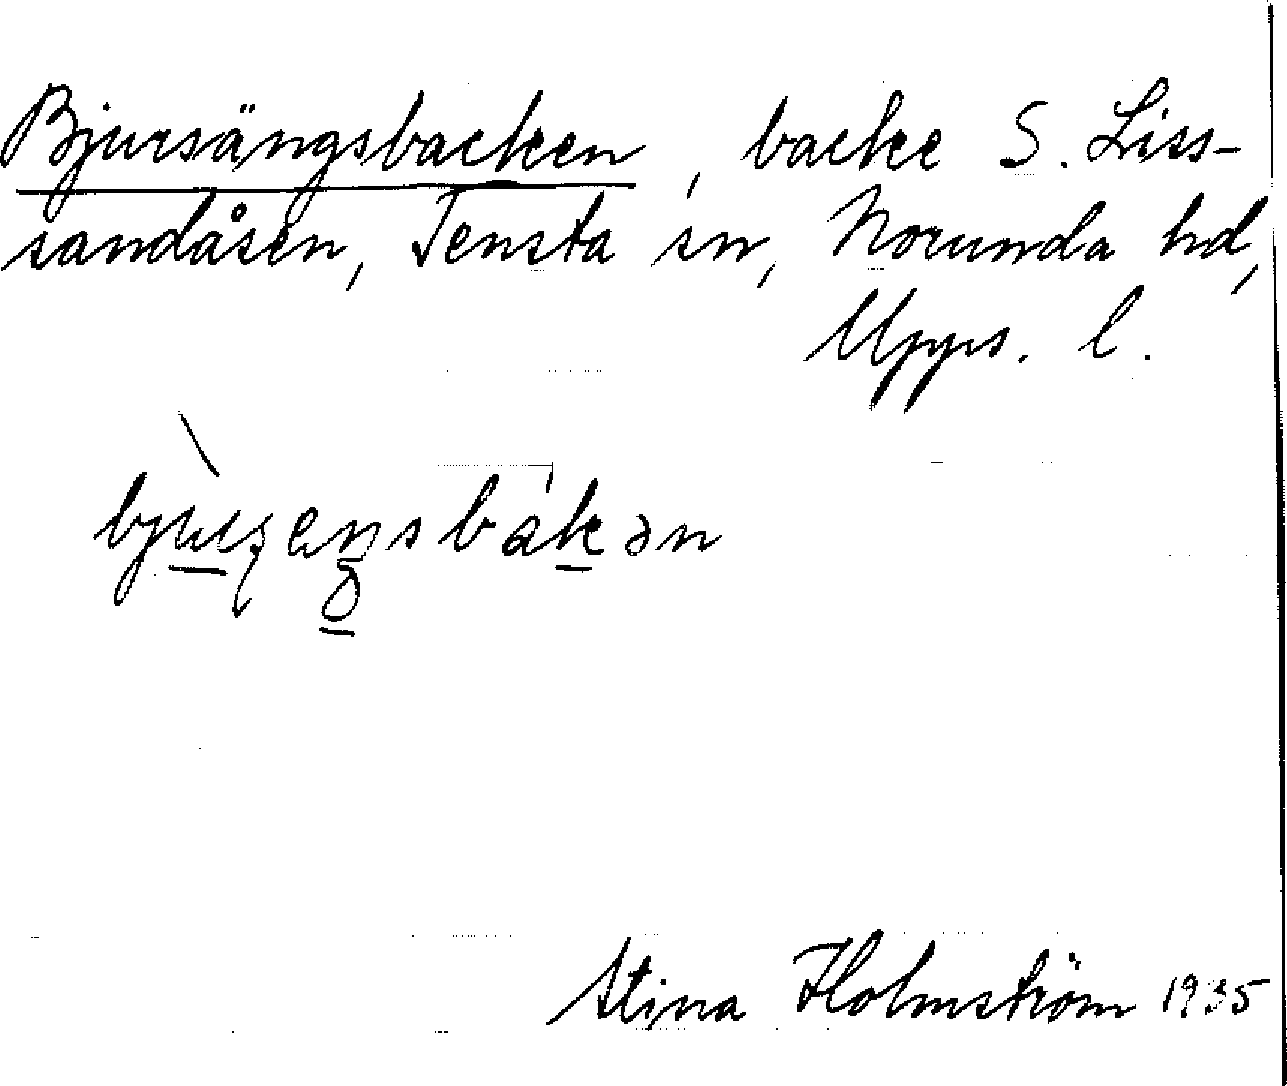 Bjursängsbacken, backe S. Liss-
sandåsen, Tensta sn, Norunda hd,
Upps. l.
Stina Holmström 1935